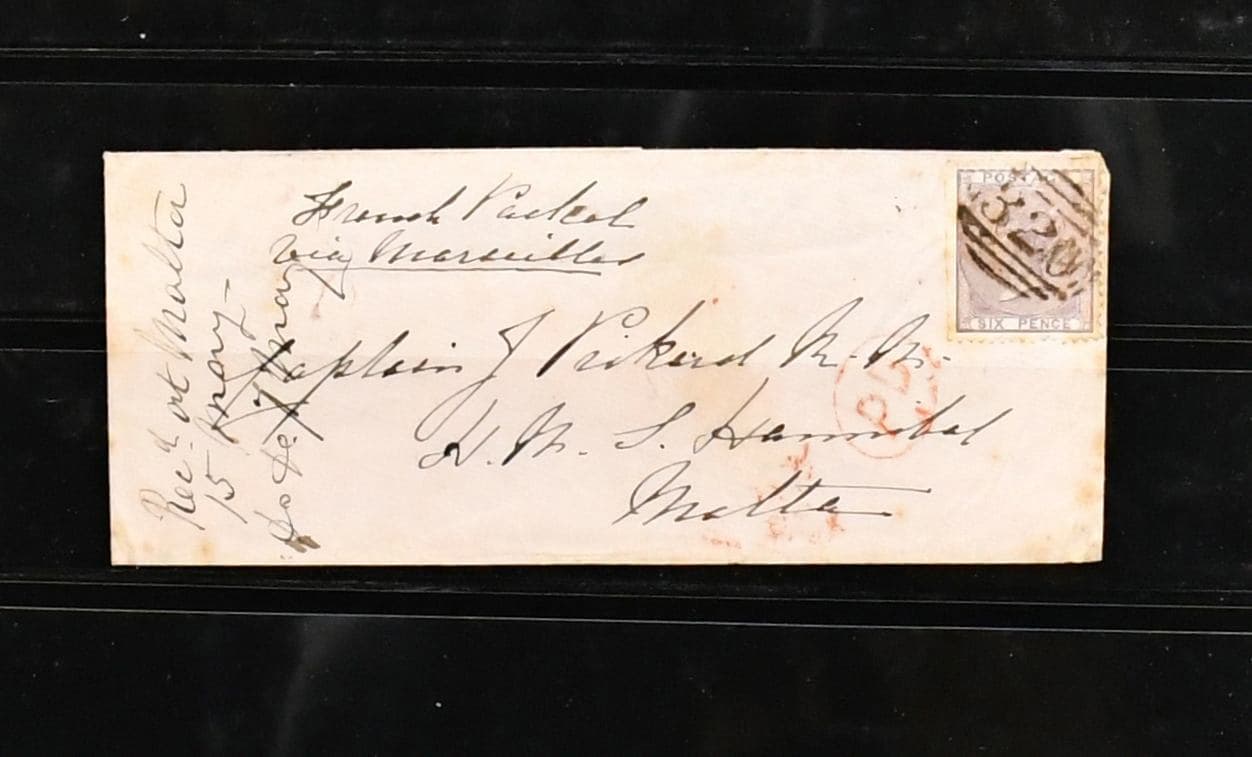 French Packet
via Marseilles
Captain J Pickard R. N.
H. M. S. Hannibal
Malta
Rec.d at Malta
15 May
May
POSTAGE
320
SIX PENCE
PD